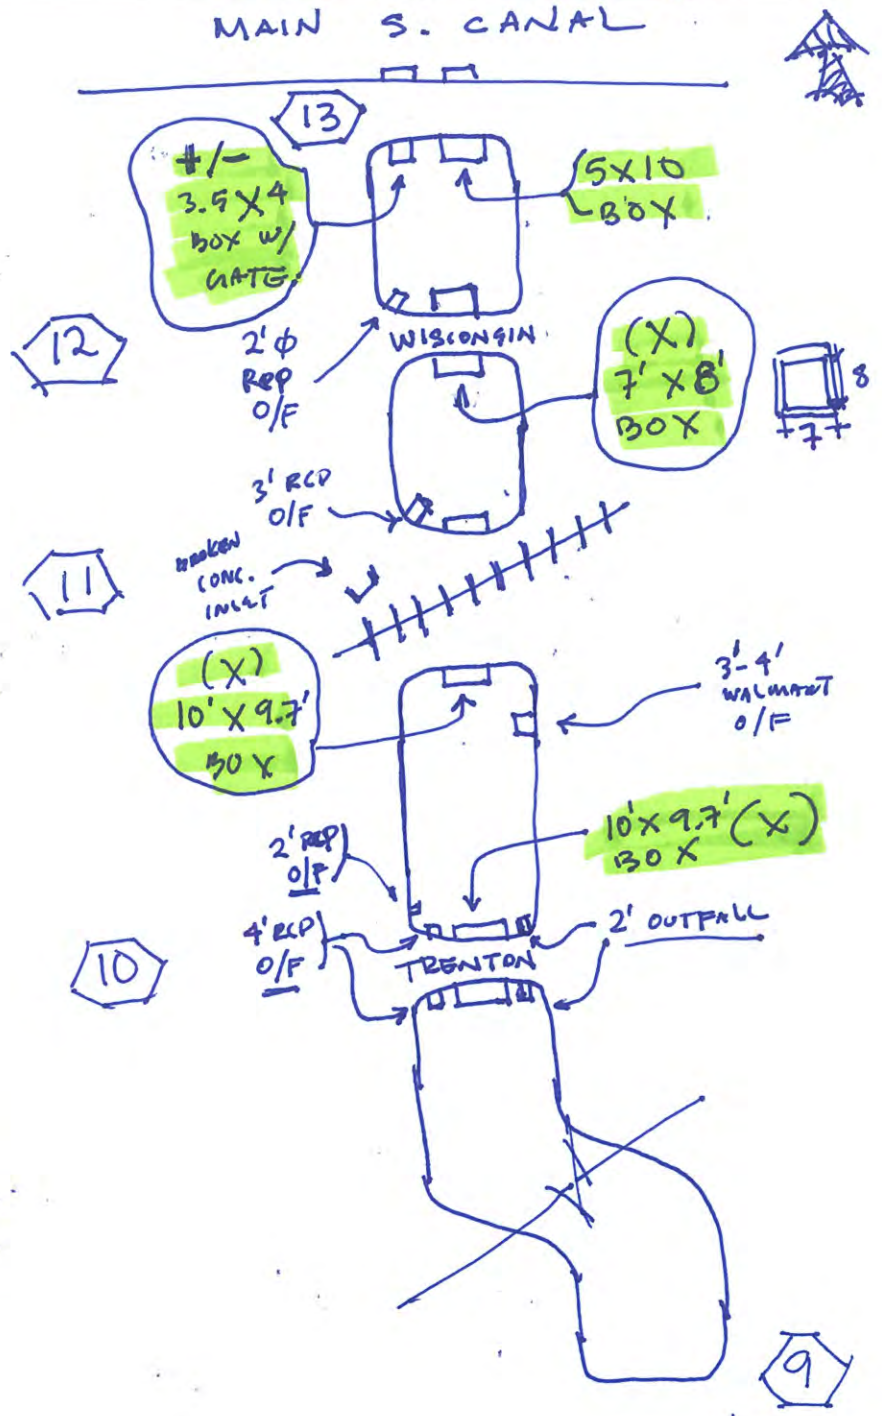 MAIN S. CANAL
13
+/-
3.5 X 4
BOX W/
GATE
5X10
BOX
12
2' φ
RCP
O/F
WISCONSIN
(X)
7' X 8'
BOX
8
7
3' RCP
O/F
11
BROKEN
CONC.
INLET
(X)
10' X 9.7'
BOX
3'-4'
WALMART
O/F
10' X 9.7' (X)
BOX
2' RCP
O/F
4' RCP
O/F
2' OUTFALL
10
TRENTON
9